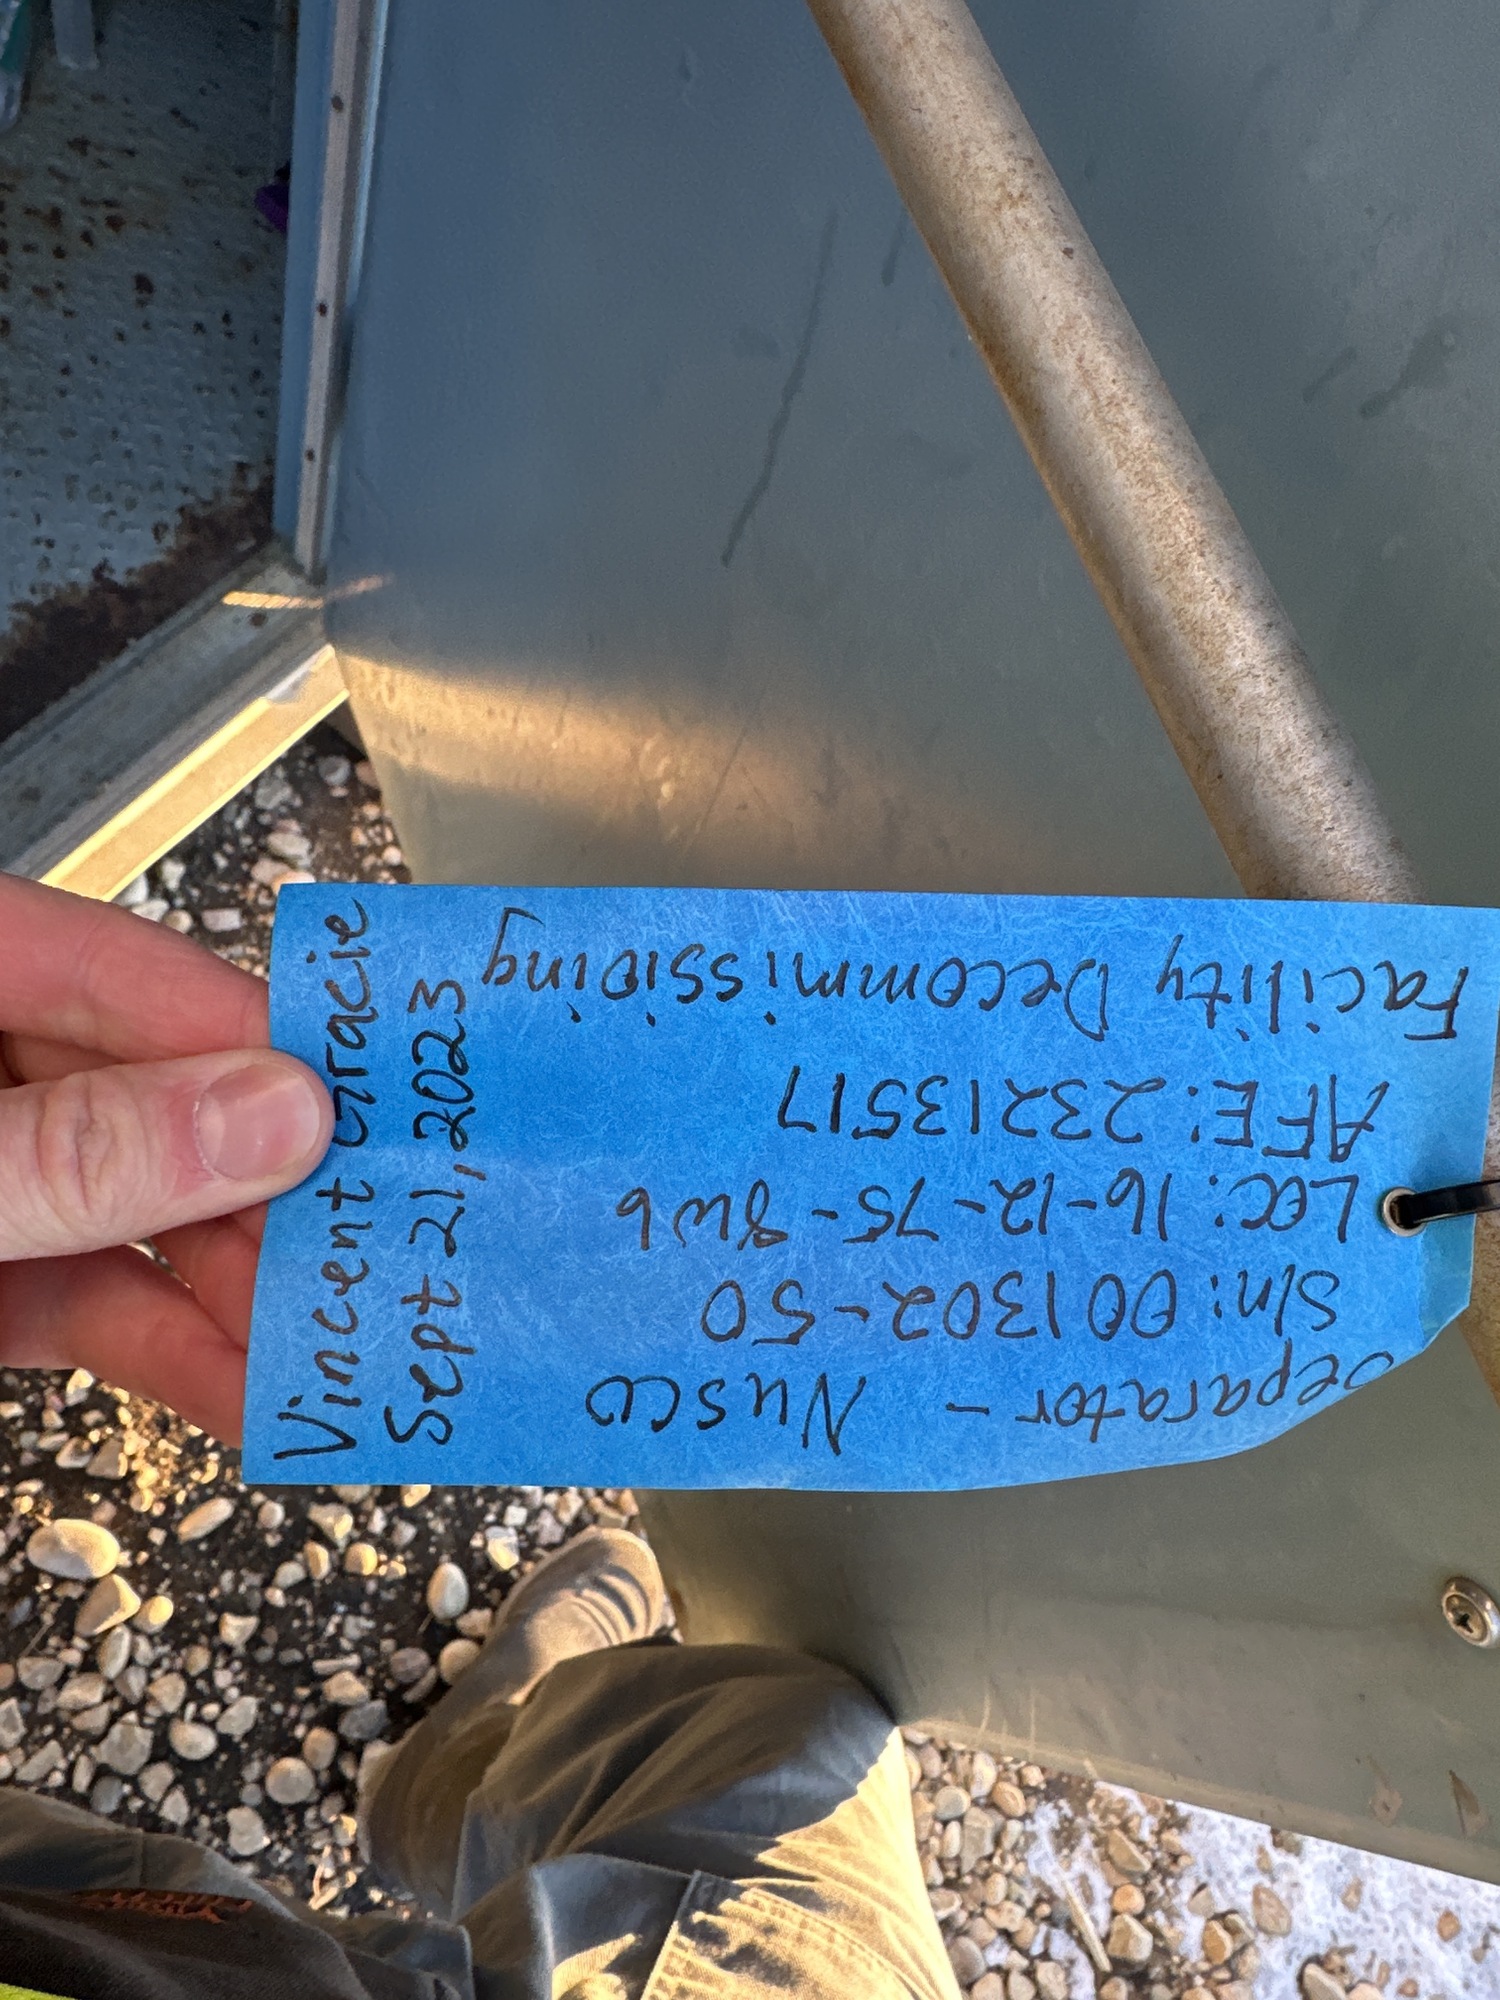 Separator - Nusco
S/n: 001302-50
Loc: 16-12-75-8w6
AFE: 23213517
Facility Decommissioing
Vincent Gracie
Sept 21, 2023